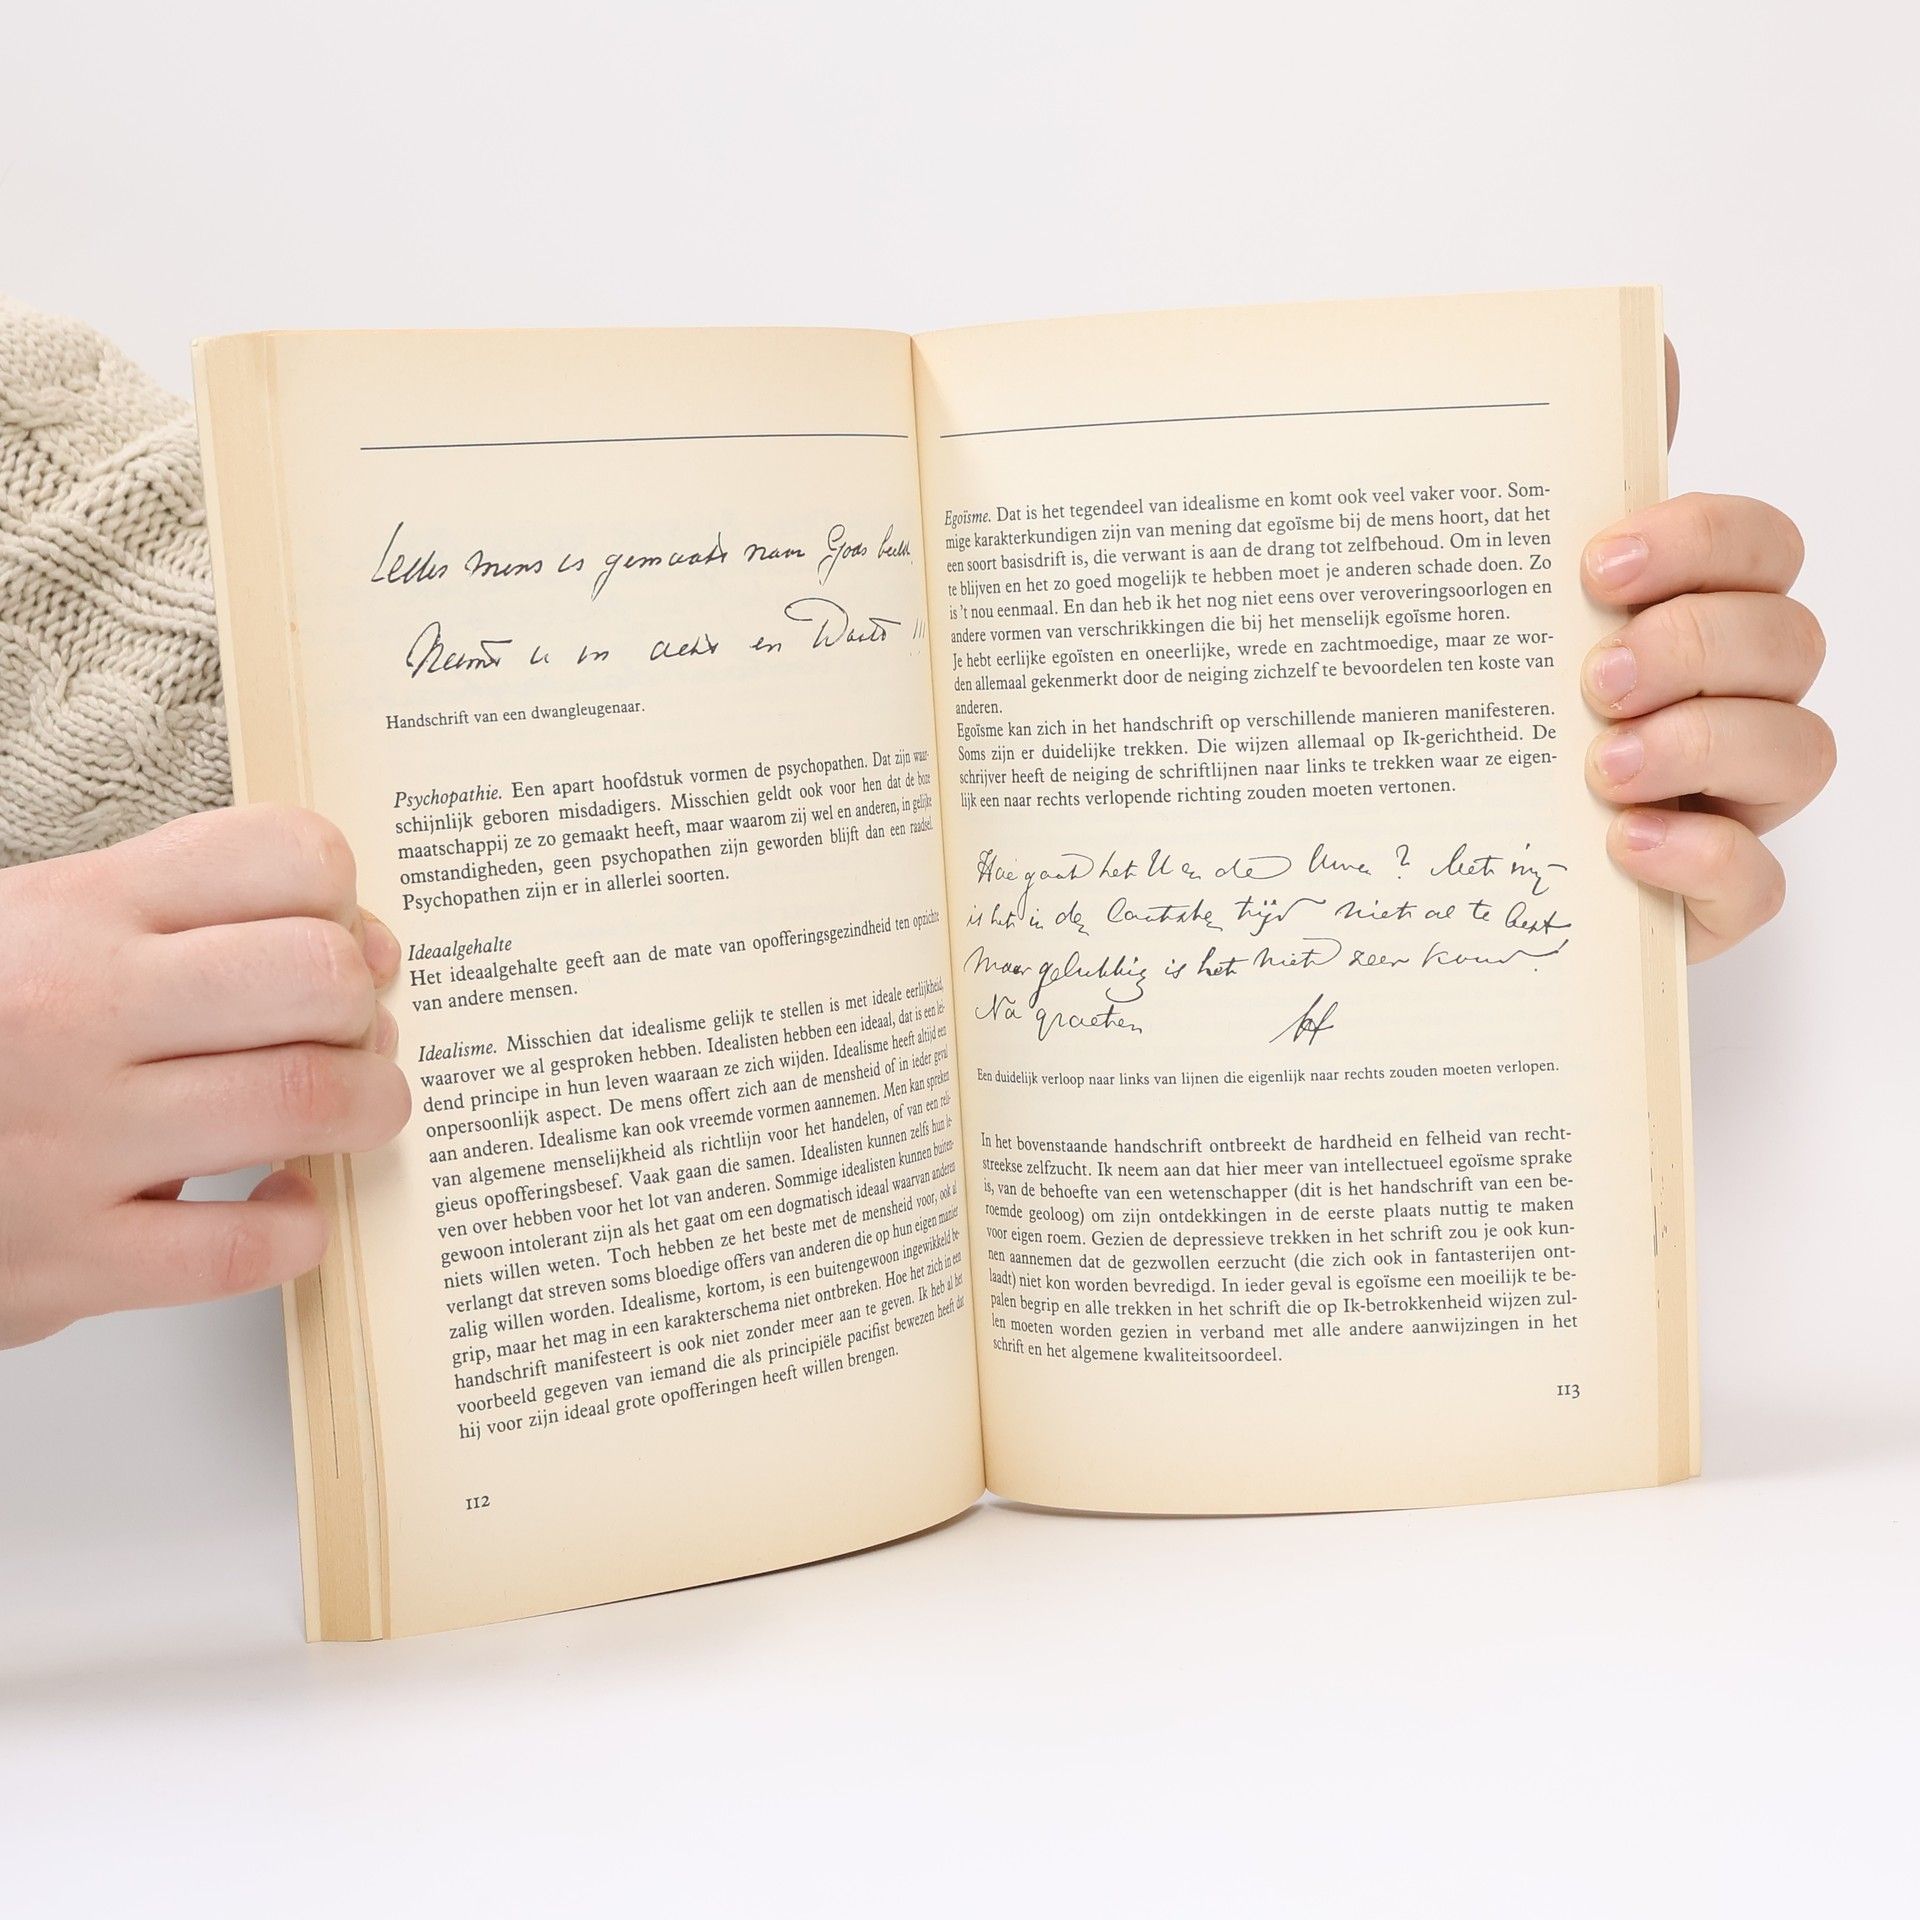 mens is gemaakt naar Gods beeld
Neemt u in acht en
Handschrift van een dwangleugenaar.
Psychopathie. Een apart hoofdstuk vormen de psychopathen. Dat zijn waar-
schijnlijk geboren misdadigers. Misschien geldt ook voor hen dat de boze
maatschappij ze zo gemaakt heeft, maar waarom zij wel en anderen, in gelijke
omstandigheden, geen psychopathen zijn geworden blijft dan een raadsel.
Psychopathen zijn er in allerlei soorten.
Ideaalgehalte
Het ideaalgehalte geeft aan de mate van opofferingsgezindheid ten opzichte
van andere mensen.
Idealisme. Misschien dat idealisme gelijk te stellen is met ideale eerlijkheid,
waarover we al gesproken hebben. Idealisten hebben een ideaal, dat is een lei-
dend principe in hun leven waaraan ze zich wijden. Idealisme heeft altijd een
onpersoonlijk aspect. De mens offert zich aan de mensheid of in ieder geval
aan anderen. Idealisme kan ook vreemde vormen aannemen. Men kan spreken
van algemene menselijkheid als richtlijn voor het handelen, of van een reli-
gieus opofferingsbesef. Vaak gaan die samen. Idealisten kunnen zelfs hun le-
ven over hebben voor het lot van anderen. Sommige idealisten kunnen buiten-
gewoon intolerant zijn als het gaat om een dogmatisch ideaal waarvan anderen
niets willen weten. Toch hebben ze het beste met de mensheid voor, ook al
verlangt dat streven soms bloedige offers van anderen die op hun eigen manier
zalig willen worden. Idealisme, kortom, is een buitengewoon ingewikkeld be-
grip, maar het mag in een karakterschema niet ontbreken. Hoe het zich in een
handschrift manifesteert is ook niet zonder meer aan te geven. Ik heb al het
voorbeeld gegeven van iemand die als principiële pacifist bewezen heeft dat
hij voor zijn ideaal grote opofferingen heeft willen brengen.
112
Egoïsme. Dat is het tegendeel van idealisme en komt ook veel vaker voor. Som-
mige karakterkundigen zijn van mening dat egoïsme bij de mens hoort, dat het
een soort basisdrift is, die verwant is aan de drang tot zelfbehoud. Om in leven
te blijven en het zo goed mogelijk te hebben moet je anderen schade doen. Zo
is 't nou eenmaal. En dan heb ik het nog niet eens over veroveringsoorlogen en
andere vormen van verschrikkingen die bij het menselijk egoïsme horen.
Je hebt eerlijke egoïsten en oneerlijke, wrede en zachtmoedige, maar ze wor-
den allemaal gekenmerkt door de neiging zichzelf te bevoordelen ten koste van
anderen.
Egoïsme kan zich in het handschrift op verschillende manieren manifesteren.
Soms zijn er duidelijke trekken. Die wijzen allemaal op Ik-gerichtheid. De
schrijver heeft de neiging de schriftlijnen naar links te trekken waar ze eigen-
lijk een naar rechts verlopende richting zouden moeten vertonen.
Hoe gaat het U en de Uwen? Met mij
is het in de laatste tijd niet al te best
Maar gelukkig is het niet zeer koud!
Na groeten
Een duidelijk verloop naar links van lijnen die eigenlijk naar rechts zouden moeten verlopen.
In het bovenstaande handschrift ontbreekt de hardheid en felheid van recht-
streekse zelfzucht. Ik neem aan dat hier meer van intellectueel egoïsme sprake
is, van de behoefte van een wetenschapper (dit is het handschrift van een be-
roemde geoloog) om zijn ontdekkingen in de eerste plaats nuttig te maken
voor eigen roem. Gezien de depressieve trekken in het schrift zou je ook kun-
nen aannemen dat de gezwollen eerzucht (die zich ook in fantasterijen ont-
laadt) niet kon worden bevredigd. In ieder geval is egoïsme een moeilijk te be-
palen begrip en alle trekken in het schrift die op Ik-betrokkenheid wijzen zul-
len moeten worden gezien in verband met alle andere aanwijzingen in het
schrift en het algemene kwaliteitsoordeel.
113